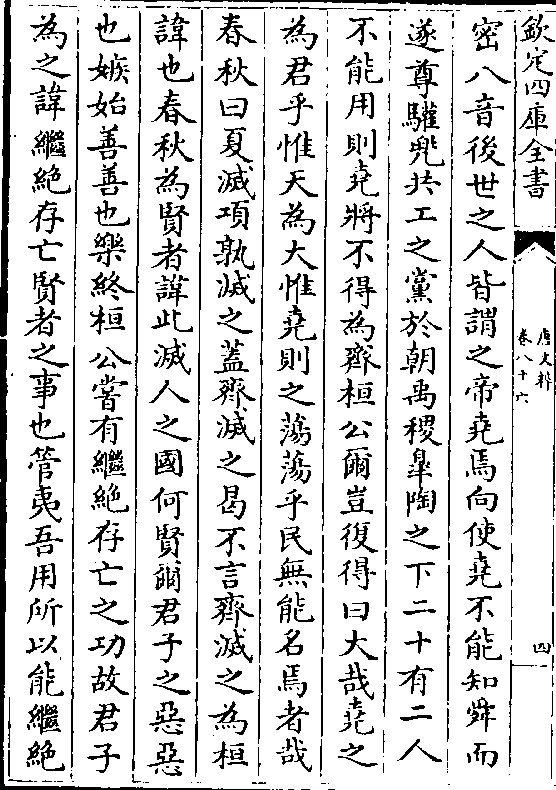 欽定四庫全書
唐文粹
卷八十六
四
密八音後世之人皆謂之帝堯焉向使堯不能知舜而
遂尊驩兜共工之黨於朝禹稷臯陶之下二十有二人
不能用則堯將不得為齊桓公爾豈復得曰大哉堯之
為君乎惟天為大惟堯則之蕩蕩乎民無能名焉者哉
春秋曰夏滅項孰滅之蓋齊滅之曷不言齊滅之為桓
諱也春秋為賢者諱此滅人之國何賢爾君子之惡惡
也嫉始善善也樂終桓公嘗有繼絶存亡之功故君子
為之諱繼絶存亡賢者之事也管夷吾用所以能繼絶